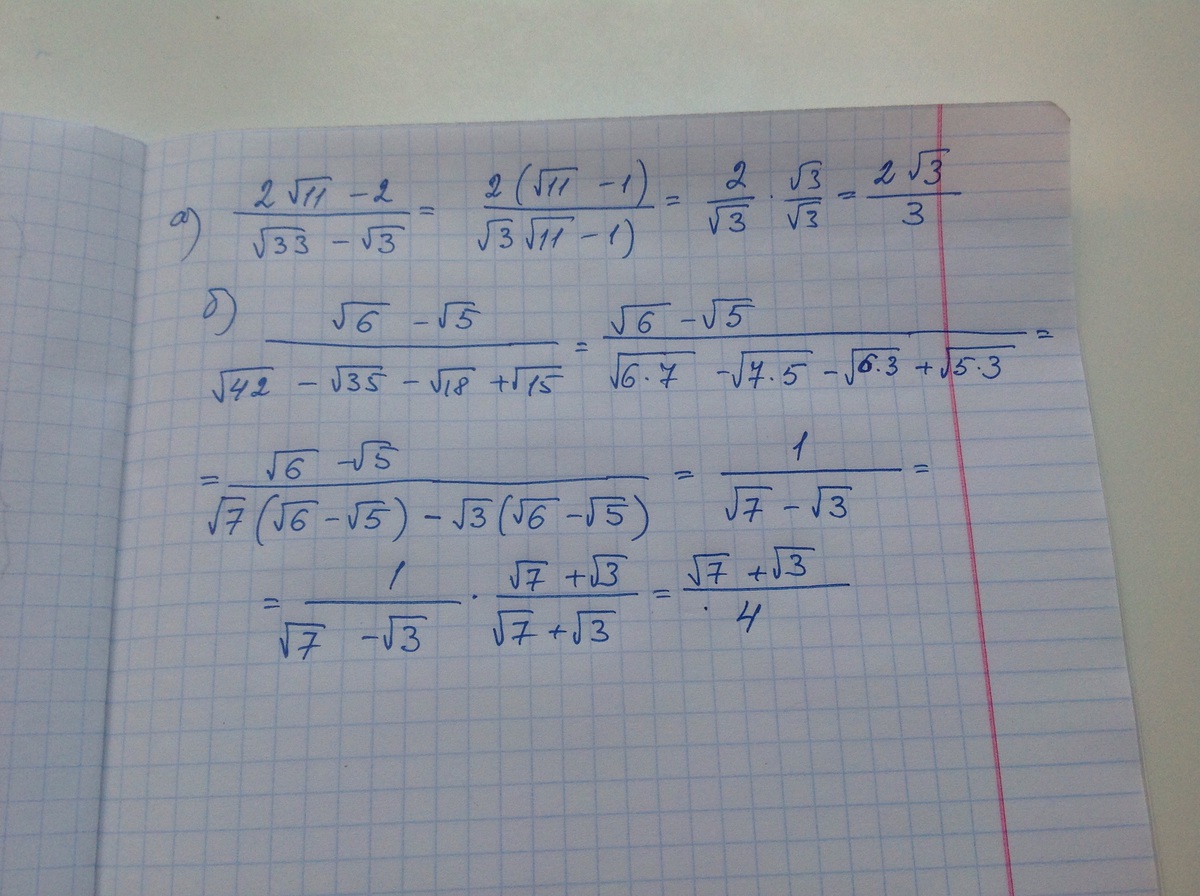 а) (2√11 − 2)/(√33 − √3) = 2(√11 − 1)/(√3 √11 − 1) = 2/√3 · √3/√3 = 2√3/3
б) (√6 − √5)/(√42 − √35 − √18 + √15) = (√6 − √5)/(√6·7 − √7·5 − √6·3 + √5·3) =
= (√6 − √5)/(√7(√6 − √5) − √3(√6 − √5)) = 1/(√7 − √3) =
= 1/(√7 − √3) · (√7 + √3)/(√7 + √3) = (√7 + √3)/4